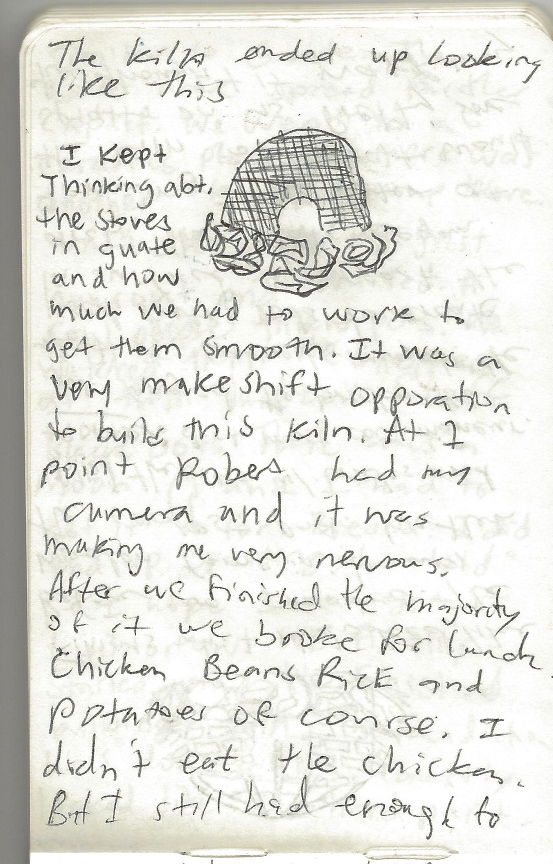 The kiln ended up looking
like this
I Kept
Thinking abt.
the stoves
in guate
and how
much we had to work to
get them smooth. It was a
very makeshift opporation
to build this kiln. At 1
point Robert had my
camera and it was
making me very nervous.
After we finished the majority
of it we broke for lunch.
Chicken Beans Rice and
potatoes of course. I
didn't eat the chicken.
But I still had enough to